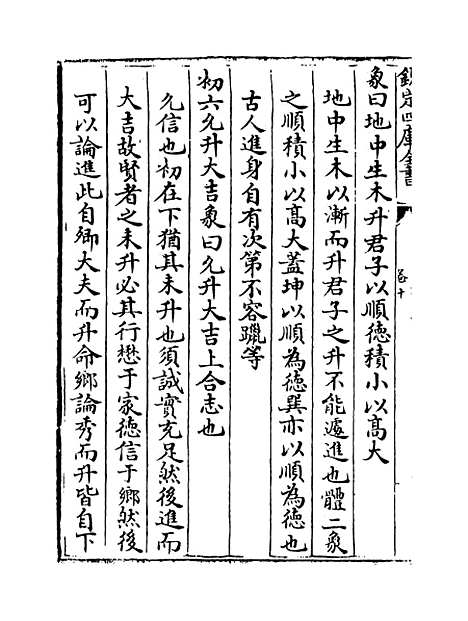 欽定四庫全書
卷十
象曰地中生木升君子以順德積小以髙大
地中生木以漸而升君子之升不能遽進也體二象
之順積小以髙大蓋坤以順為德巽亦以順為德也
古人進身自有次第不容躐等
初六允升大吉象曰允升大吉上合志也
允信也初在下猶其未升也須誠實充足然後進而
大吉故賢者之未升必其行懋于家德信于鄉然後
可以論進此自鄉大夫而升命鄉論秀而升皆自下